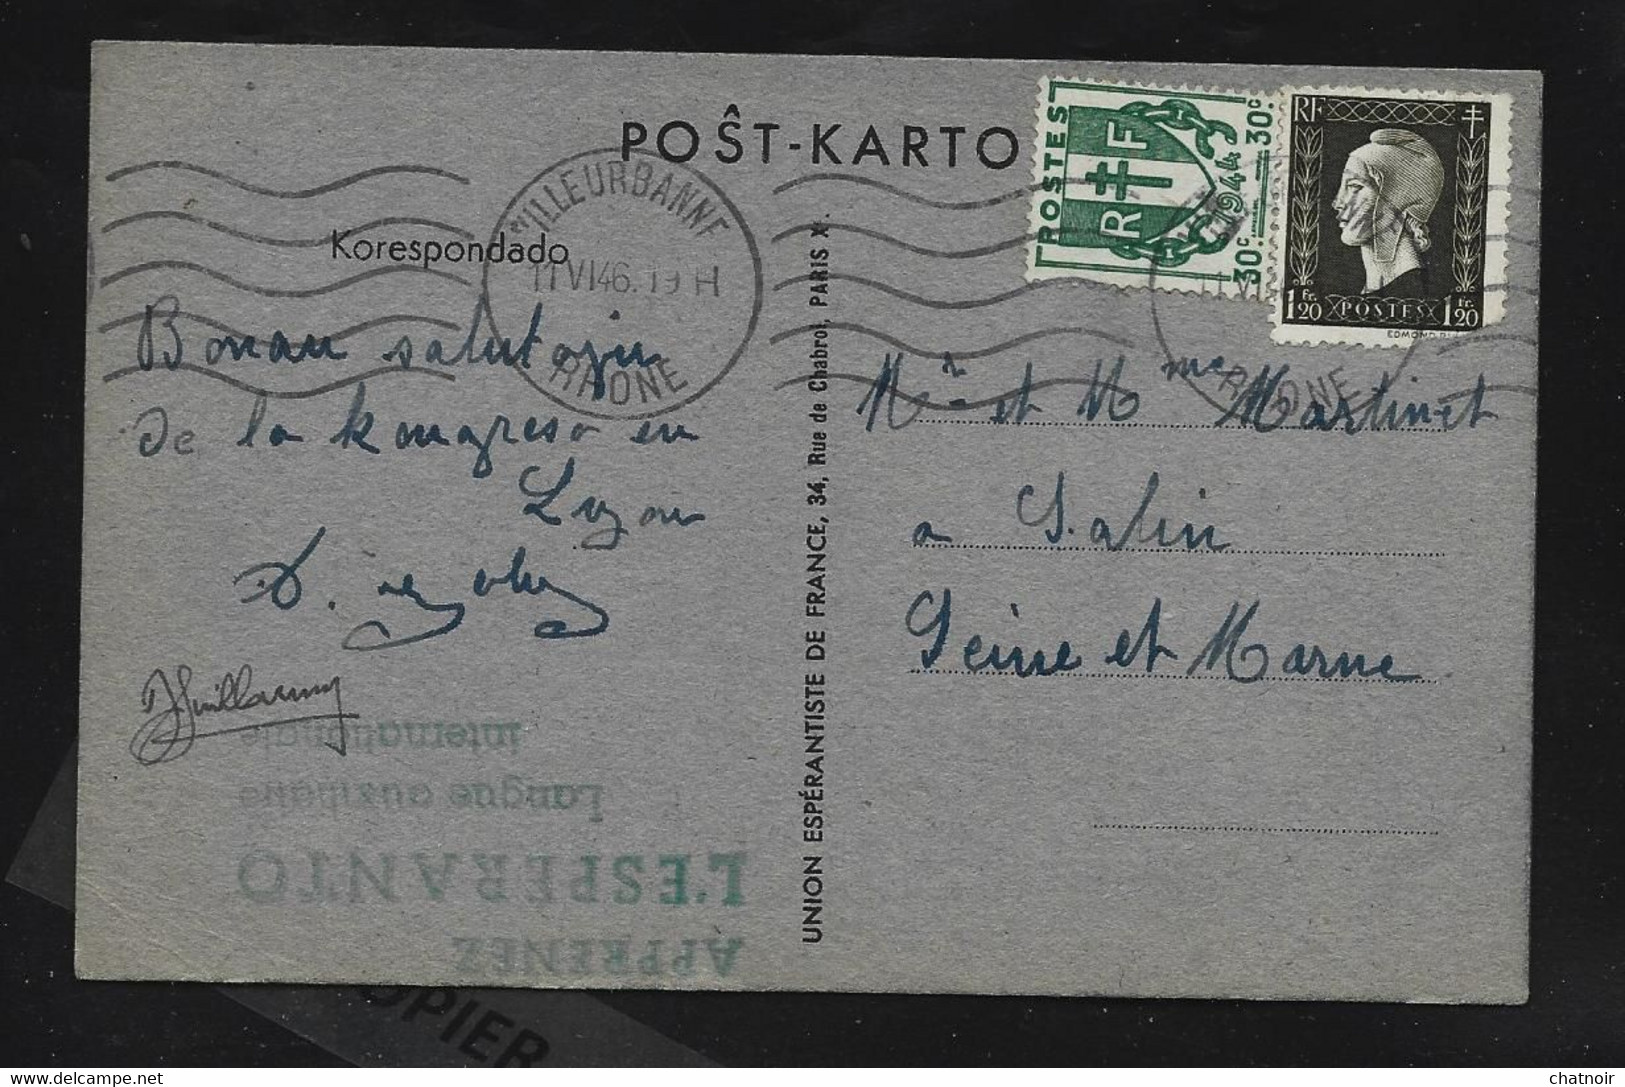 POŜT-KARTO
Korespondado
VILLEURBANNE
11 VI 46. 19 H
RHONE
Bonan salutojn
de la kongreso en
Lyon
J Guillaumy
UNION ESPÉRANTISTE DE FRANCE, 34, Rue de Chabrol, PARIS X.
POSTES
RF
1944
30c 30c
RF
1Fr.20 POSTES 1Fr.20
RHONE
Mr et Mme Martinet
a Salin
Seine et Marne
APPRENEZ
L'ESPERANTO
Langue auxiliaire
internationale
OPIER
delcampe.net
chatnoir